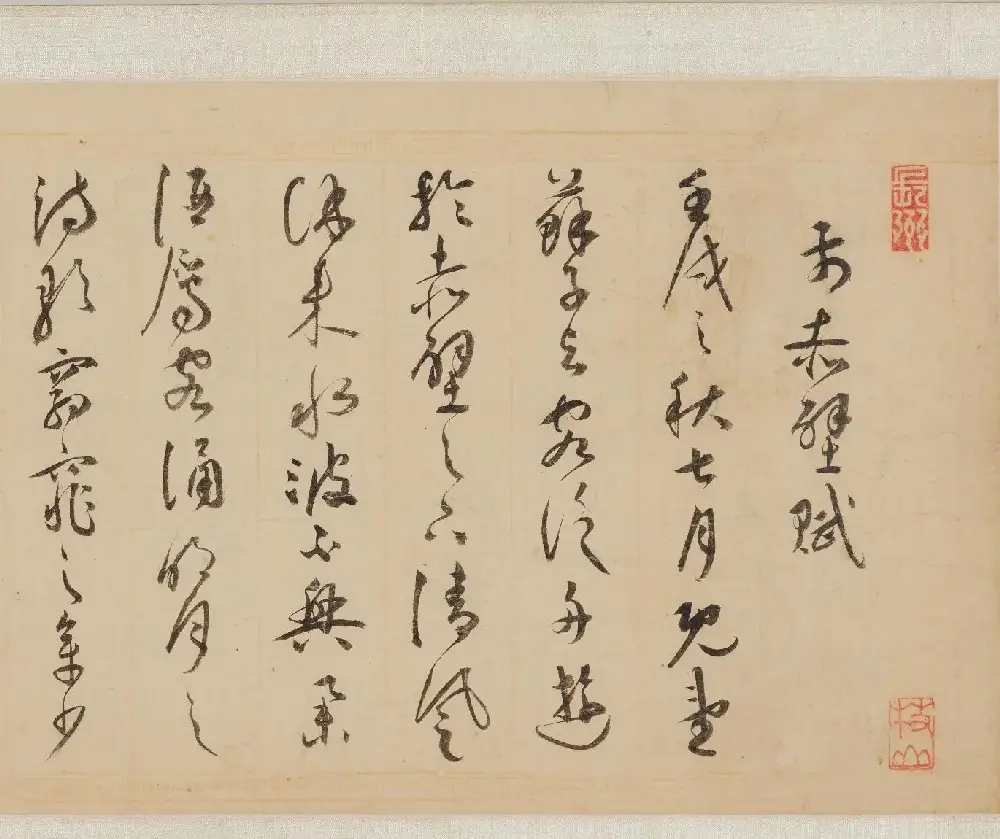 枝山
前赤壁賦
壬戌之秋七月既望
蘇子與客泛舟遊
於赤壁之下清風
徐來水波不興舉
酒屬客誦明月之
詩歌窈窕之章少